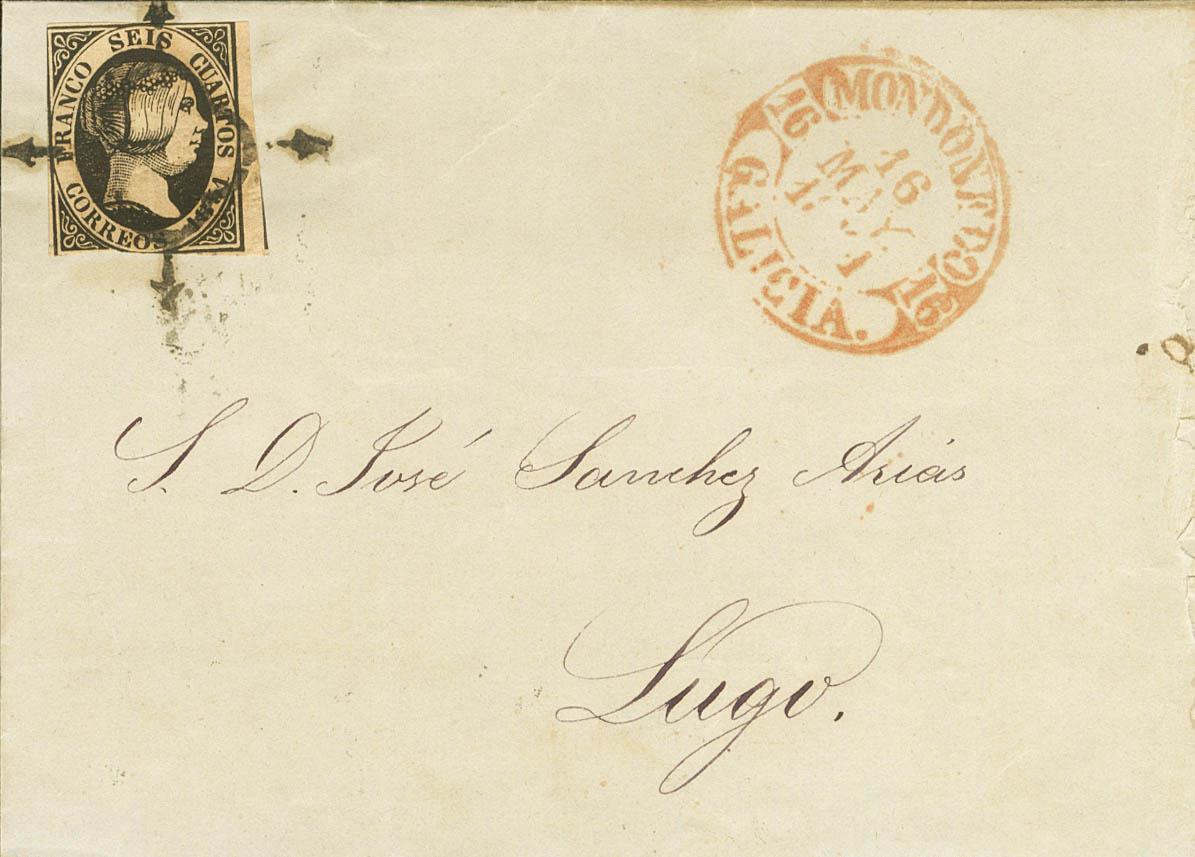 FRANCO SEIS CUARTOS
CORREOS 1851
MONDOÑEDO
16
16
MAY
16
GALICIA.
S. D. José Sanchez Arias
Lugo.